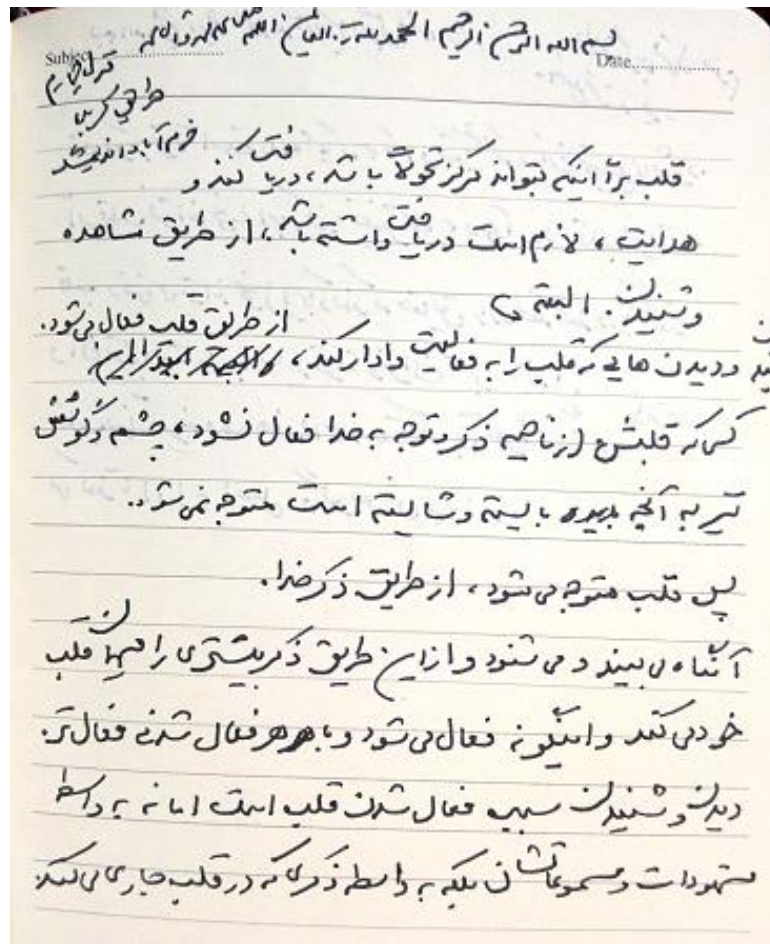 بسم الله الرحمن الرحیم الحمدلله رب العالمین اللهم صل علی محمد و آل محمد
Subject
Date
منزل چهارم
طریق کربلا
خرم آباد اندیمشک
قلب برا اینکه بتواند مرکز تحولا باشد، دریافت کند و
هدایت، لازم است دریافت داشته باشد، از طریق مشاهده
و شنیدن. البته
از طریق قلب فعال می شود.
و دیدن هایی که قلب را به فعالیت وادار کند،
کسی که قلبش از ناحیه ذکر و توجه به خدا فعال نشود، چشم و گوشش
نیز به آنچه بایسته و شایسته است متوجه نمی شود.
پس قلب متوجه می شود، از طریق ذکر خدا.
آنگاه می بیند و می شنود و از این طریق ذکر بیشتری را میهمان قلب
خود می کند و اینگونه فعال می شود و با هر فعال شدنی فعال تر.
دیدن و شنیدن سبب فعال شدن قلب است اما نه به واسطه
مشهودات و مسموعاتشان بلکه به واسطه ذکری که در قلب جاری می کند.